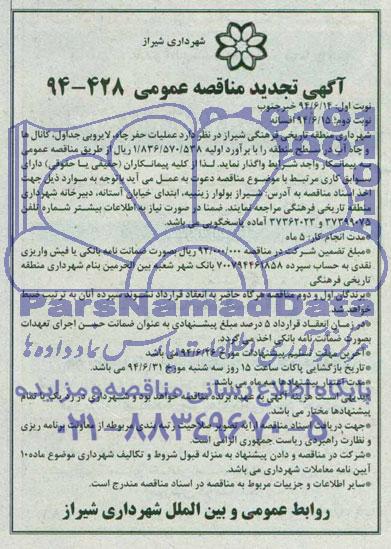 شهرداری شیراز
آگهی تجدید مناقصه عمومی ۴۲۸-۹۴
نوبت اول: ۹۴/۶/۱۴ خبرجنوب
نوبت دوم: ۹۴/۶/۱۵ افسانه
شهرداری منطقه تاریخی فرهنگی شیراز در نظر دارد عملیات حفر چاه، لایروبی جداول، کانال ها
و چاه آب در سطح منطقه را با برآورد اولیه ۱/۸۳۶/۵۷۰/۵۳۸ ریال از طریق مناقصه عمومی
به پیمانکار واجد شرایط واگذار نماید. لذا از کلیه پیمانکاران (حقیقی یا حقوقی) دارای
سوابق کاری مرتبط با موضوع مناقصه دعوت به عمل می آید باتوجه به موارد ذیل جهت
اخذ اسناد مناقصه به آدرس: شیراز بولوار زینبیه، ابتدای خیابان آستانه، دبیرخانه شهرداری
منطقه تاریخی فرهنگی مراجعه نمایند. ضمنا در صورت نیاز به اطلاعات بیشتر شماره تلفن
۳۷۳۹۹۰۷۵ و ۳۷۳۶۲۰۲۳ آماده پاسخگویی می باشد.
مدت انجام کار: ۵ ماه
*مبلغ تضمین شرکت در مناقصه ۹۲/۰۰۰/۰۰۰ ریال بصورت ضمانت نامه بانکی یا فیش واریزی
نقدی به حساب سپرده ۷۰۰۷۹۴۴۶۱۸۵۸ بانک شهر شعبه بین الحرمین بنام شهرداری منطقه
تاریخی فرهنگی
*برندگان اول و دوم مناقصه هرگاه حاضر به انعقاد قرارداد نشوند سپرده آنان به ترتیب ضبط
خواهد شد.
*در زمان انعقاد قرارداد ۵ درصد مبلغ پیشنهادی به عنوان ضمانت حسن اجرای تعهدات
بصورت ضمانت نامه بانکی اخذ می گردد.
*آخرین مهلت تسلیم پیشنهادات مورخ ۹۴/۶/۲۶ می باشد.
*تاریخ بازگشایی پاکات ساعت ۱۵ روز سه شنبه مورخ ۹۴/۶/۳۱ می باشد.
*مدت اعتبار پیشنهادها سه ماه می باشد.
*هزینه آگهی به عهده برنده مناقصه خواهد بود و شهرداری در رد یک یا تمام
پیشنهادها مختار می باشد.
*جهت دریافت اسناد مناقصه ارائه تصویر صلاحیت رتبه بندی مربوطه از معاونت برنامه ریزی
و نظارت راهبردی ریاست جمهوری الزامی است.
*شرکت در مناقصه و دادن پیشنهاد به منزله قبول شروط و تکالیف شهرداری موضوع ماده ۱۰
آیین نامه معاملات شهرداری می باشد.
*سایر اطلاعات و جزییات مربوط به مناقصه در اسناد مناقصه مندرج است.
روابط عمومی و بین الملل شهرداری شیراز
ParsNamadData
پارس نماد داده ها
پایگاه اطلاع رسانی مناقصه و مزایده
۰۲۱-۸۸۳۴۹۶۷۰-۵